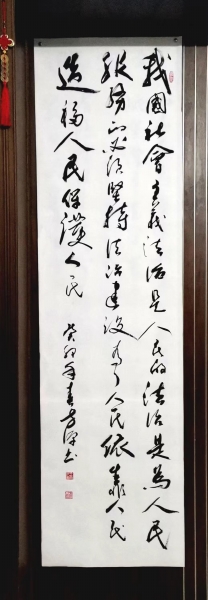 我國社會主義法治是人民的法治是為人民
服務必須堅持法治建設為了人民依靠人民
造福人民保護人民
癸卯年春